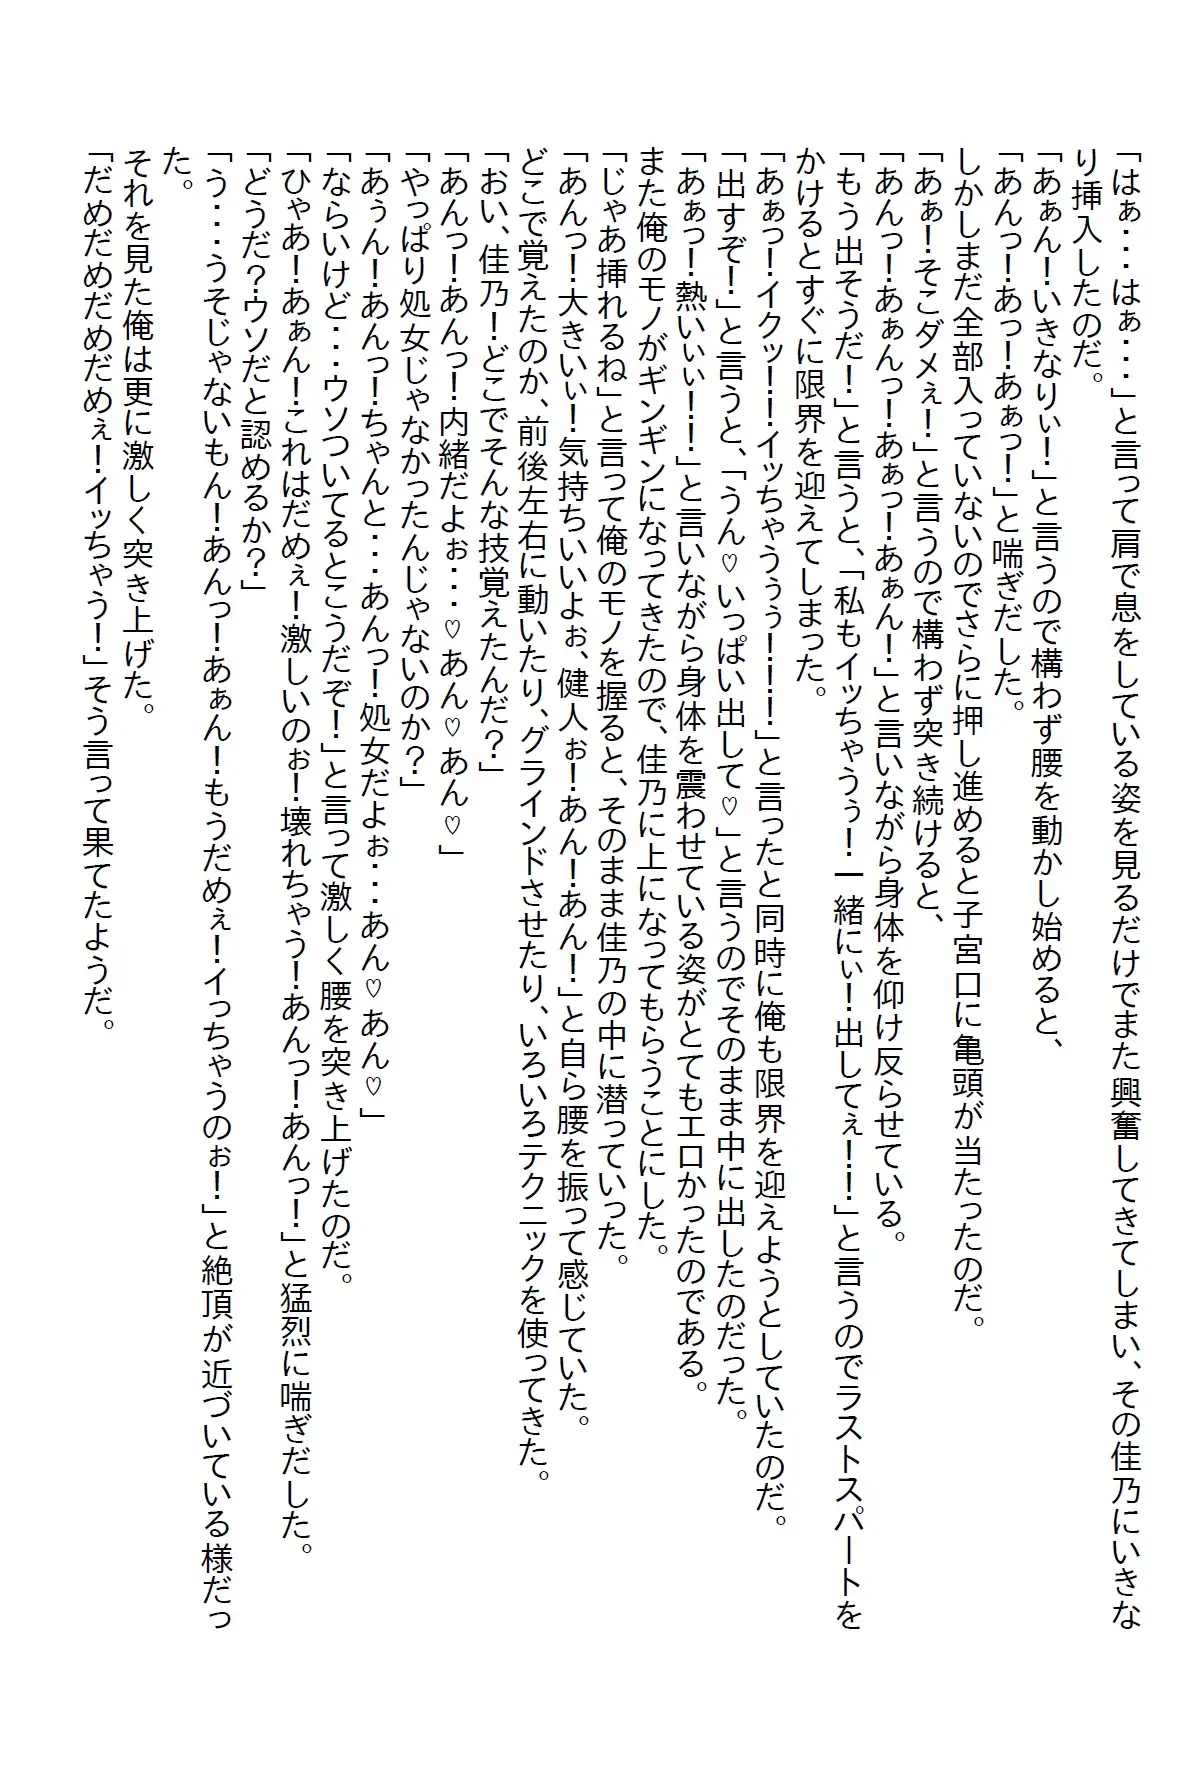 「はぁ・・・はぁ・・・」と言って肩で息をしている姿を見るだけでまた興奮してきてしまい、その佳乃にいきな
り挿入したのだ。
「あぁん！いきなりぃ！」と言うので構わず腰を動かし始めると、
「あんっ！あっ！あぁっ！」と喘ぎだした。
しかしまだ全部入っていないのでさらに押し進めると子宮口に亀頭が当たったのだ。
「あぁ！そこダメぇ！」と言うので構わず突き続けると、
「あんっ！あぁんっ！あぁっ！あぁん！」と言いながら身体を仰け反らせている。
「もう出そうだ！」と言うと、「私もイッちゃうぅ！一緒にぃ！出してぇ！！」と言うのでラストスパートを
かけるとすぐに限界を迎えてしまった。
「あぁっ！イクッ！！イッちゃうぅぅ！！！」と言ったと同時に俺も限界を迎えようとしていたのだ。
「出すぞ！」と言うと、「うん♡いっぱい出して♡」と言うのでそのまま中に出したのだった。
「あぁっ！熱いぃぃ！！」と言いながら身体を震わせている姿がとてもエロかったのである。
また俺のモノがギンギンになってきたので、佳乃に上になってもらうことにした。
「じゃあ挿れるね」と言って俺のモノを握ると、そのまま佳乃の中に潜っていった。
「あんっ！大きいぃ！気持ちいいよぉ、健人ぉ！あん！あん！」と自ら腰を振って感じていた。
どこで覚えたのか、前後左右に動いたり、グラインドさせたり、いろいろテクニックを使ってきた。
「おい、佳乃！どこでそんな技覚えたんだ？」
「あんっ！あんっ！内緒だよぉ・・・♡あん♡あん♡」
「やっぱり処女じゃなかったんじゃないのか？」
「あぅん！あんっ！ちゃんと・・・あんっ！処女だよぉ・・・あん♡あん♡」
「ならいけど・・・ウソついてるとこうだぞ！」と言って激しく腰を突き上げたのだ。
「ひゃあ！あぁん！これはだめぇ！激しいのぉ！壊れちゃう！あんっ！あんっ！」と猛烈に喘ぎだした。
「どうだ？ウソだと認めるか？」
「う・・・うそじゃないもん！あんっ！あぁん！もうだめぇ！イっちゃうのぉ！」と絶頂が近づいている様だっ
た。
それを見た俺は更に激しく突き上げた。
「だめだめだめだめぇ！イッちゃう！」そう言って果てたようだ。